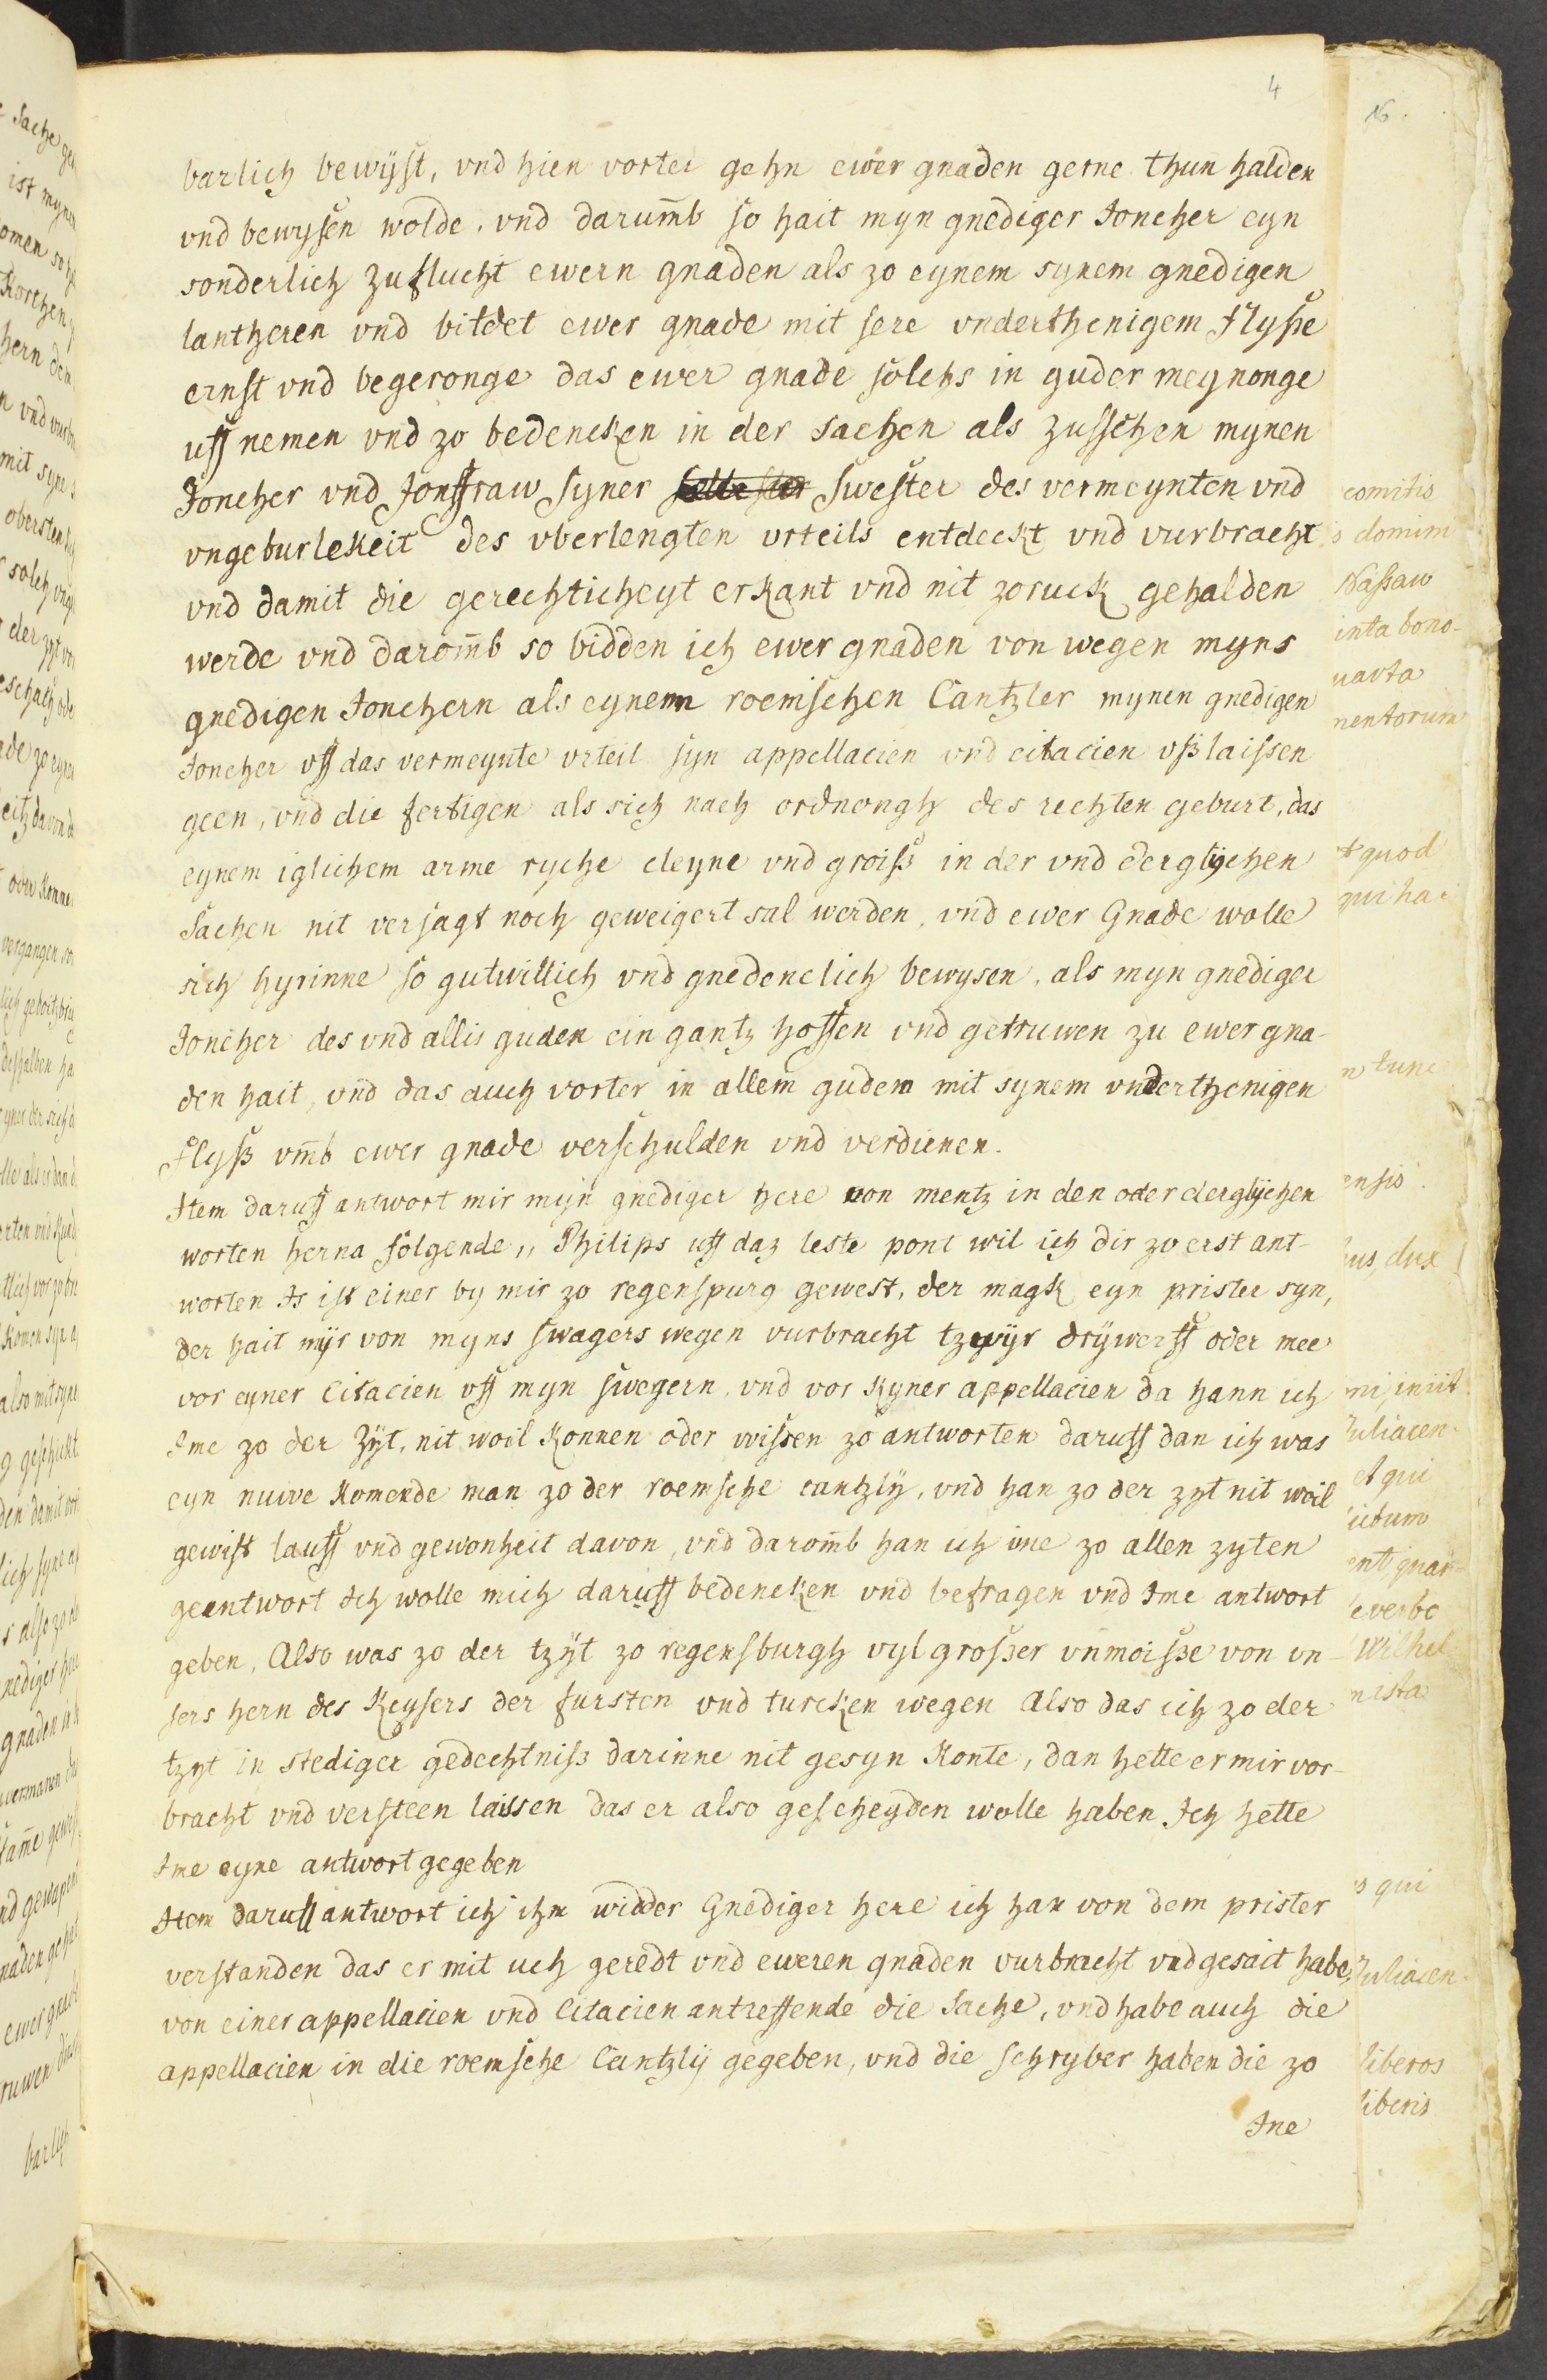 4
barlich bewijst, vnd hien vorter gehn ewer gnaden gerne thun halden
vnd bewysen wolde, vnd darum̄b so hait myn gnediger Joncher eyn
sonderlich Zuflucht ewern gnaden als zo eynem synem gnedigen
lantheren vnd bitdet ewer gnade mit sere vnderthenigem Flyße
ernst vnd begeronge das ewer gnade solchs in guder meynonge
uff nemen vnd zo bedencken in der sachen als zusschen mynen
Joncher vnd Jonffraw syner swester des vermeynten vnd
vngeburlekeit des vberlengten vrteils entdeckt vnd vurbracht
vnd damit die gerechticheyt erkant vnd nit zoruck gehalden
werde vnd darom̄b so bidden ich ewer gnaden von wegen myns
gnedigen Jonchern als eynem roemischen Cantzler mynen gnedigen
Joncher vff das vermeynte vrteil syn appellacien vnd citacien vßlaissen
geen, vnd die fertigen als sich nach ordnongh des rechten geburt, das
eynem iglichem arme ryche cleyne vnd groiß in der vnd derglychen
Sachen nit versagt noch geweigert sal werden, vnd ewer Gnade wolle
sich hyrinne so gutwillich vnd gnedenclich bewysen, als myn gnediger
Joncher des vnd allis guden ein gantz hoffen vnd getruwen zu ewer gna-
den hait, vnd das auch vorter in allem gudem mit synem vnderthenigen
Flyß vm̄b ewer gnade verschulden vnd verdienen.
Item daruff antwort mir mijn gnediger here von mentz in den oder derglijchen
worten herna folgende,, Philips uff daz leste pont wil ich dir zo erst ant-
worten Is ist einer by mir zo regenspurg gewest, der magk eyn prister syn,
der hait mijr von myns swagers wegen vurbracht tzwijr drijwerff oder mee
vor eyner Citacien vff myn swegern, vnd vor kyner appellacien da hann ich
Ime zo der Zijt, nit woil konnen oder wissen zo antworten daruff dan ich was
eyn nuwe komende man zo der roemsche cantzlij, vnd han zo der zyt nit woil
gewist lauff vnd gewonheit davon, vnd darom̄b han ich ime zo allen zyten
geantwort Ich wolle mich daruff bedencken vnd befragen vnd Ime antwort
geben, Also was zo der tzijt zo regensburgh vyl großer vnmoiße von vn-
sers hern des Keysers der fursten vnd turcken wegen Also das ich zo der
tzyt in stediger gedechtniß darinne nit gesyn konte, dan hette er mir vor-
bracht vnd versteen laissen das er also gescheyden wolle haben Ich hette
Ime eyne antwort gegeben
Item daruff antwort ich ihm widder Gnediger here ich han von dem prister
verstanden das er mit uch geredt vnd eweren gnaden vurbracht vnd gesait habe,
von einer appellacien vnd Citacien antreffende die Sache, vnd habe auch die
appellacien in die roemsche Cantzlij gegeben, vnd die schryber haben die zo
Ime
16.
comitis
domini
Naßaw
quod
tunc
ensis
dux
iniit
Juliacen-
et qui
verbo
Wilhel
qui
Juliacen-
liberos
liberis
barlich